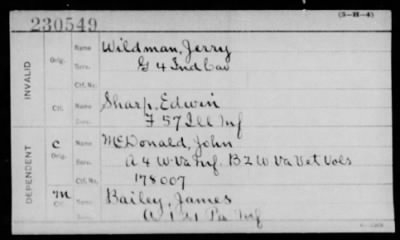 230549
(5-H-4)
INVALID
Orig.
Name
Wildman, Jerry
Serv.
G 4 Ind Cav
Ctf. No.
Ctf.
Name
Sharp, Edwin
Serv.
F 57 Ill Inf
DEPENDENT
C
Orig.
Name
McDonald, John
Serv.
A 4 W Va Inf. B 2 W Va Vet Vols
Ctf. No.
178007
M
Name
Bailey, James
Serv.
Pa Inf